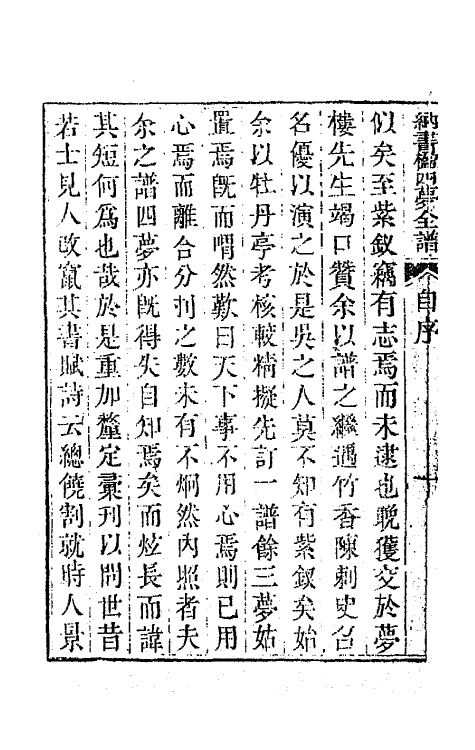 納書楹四夢全譜 自序 一
似矣至紫釵竊有志焉而未逮也晚獲交於夢
樓先生竭口贊余以譜之繼遇竹香陳刺史召
名優以演之於是吳之人莫不知有紫釵矣始
余以牡丹亭考核較精擬先訂一譜餘三夢姑
置焉旣而喟然歎曰天下事不用心焉則已用
心焉而離合分刌之數未有不炯然內照者夫
余之譜四夢亦旣得失自知焉矣而炫長而諱
其短何爲也哉於是重加釐定彚刊以問世昔
若士見人改竄其書賦詩云總饒割就時人景